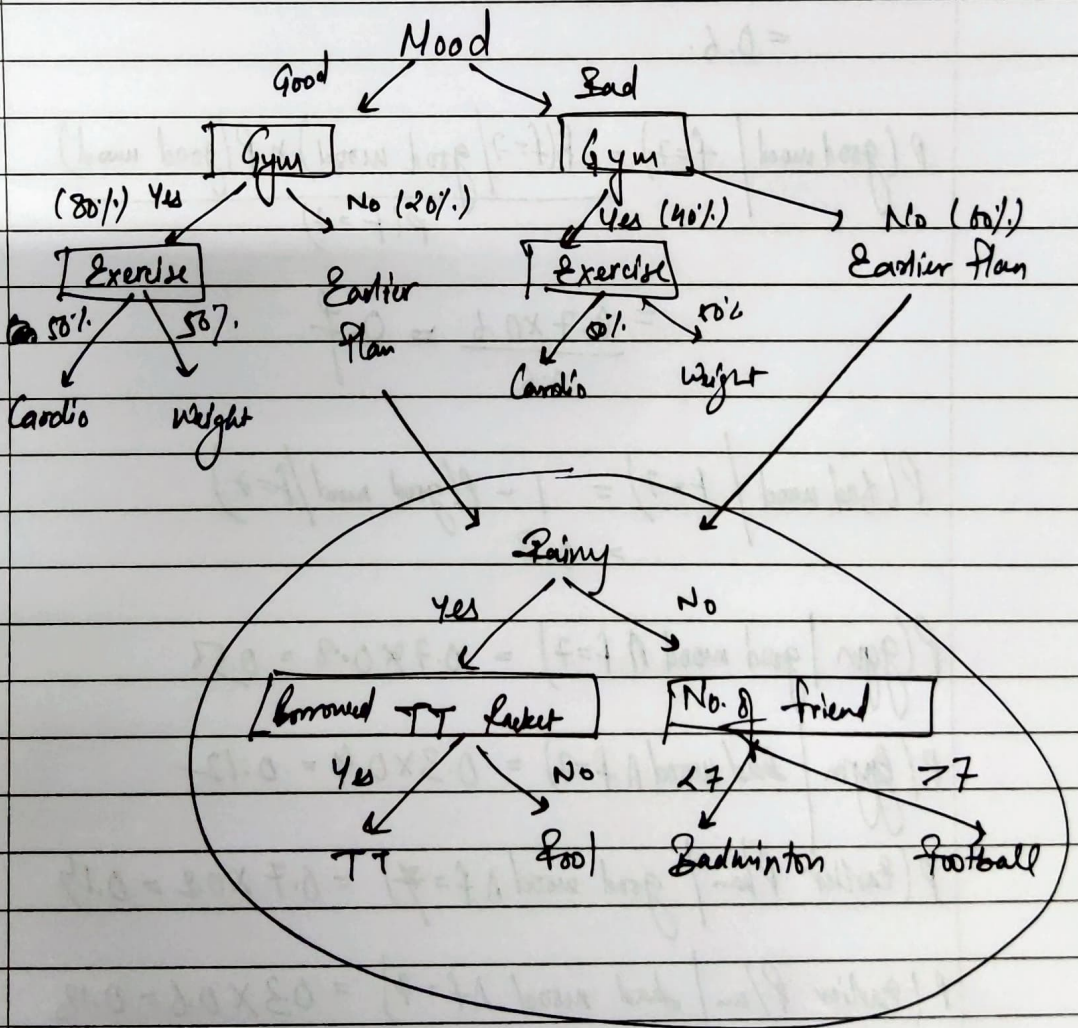 Mood
Good Bad
Gym Gym
(80%) Yes No (20%) Yes (40%) No (60%)
Exercise Earlier Plan Exercise Earlier Plan
50% 50% 50%
Cardio Weight Cardio Weight
Rainy
Yes No
Borrowed TT Racket No. of friend
Yes No <7 >7
TT Pool Badminton Football